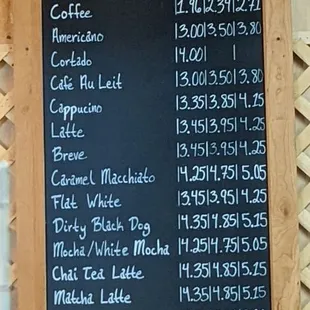 Coffee |1.96|2.34|2.71
Americano |3.00|3.50|3.80
Cortado |4.00| |
Café Au Leit |3.00|3.50|3.80
Cappucino |3.35|3.85|4.15
Latte |3.45|3.95|4.25
Breve |3.45|3.95|4.25
Caramel Macchiato |4.25|4.75|5.05
Flat White |3.45|3.95|4.25
Dirty Black Dog |4.35|4.85|5.15
Mocha/White Mocha |4.25|4.75|5.05
Chai Tea Latte |4.35|4.85|5.15
Matcha Latte |4.35|4.85|5.15